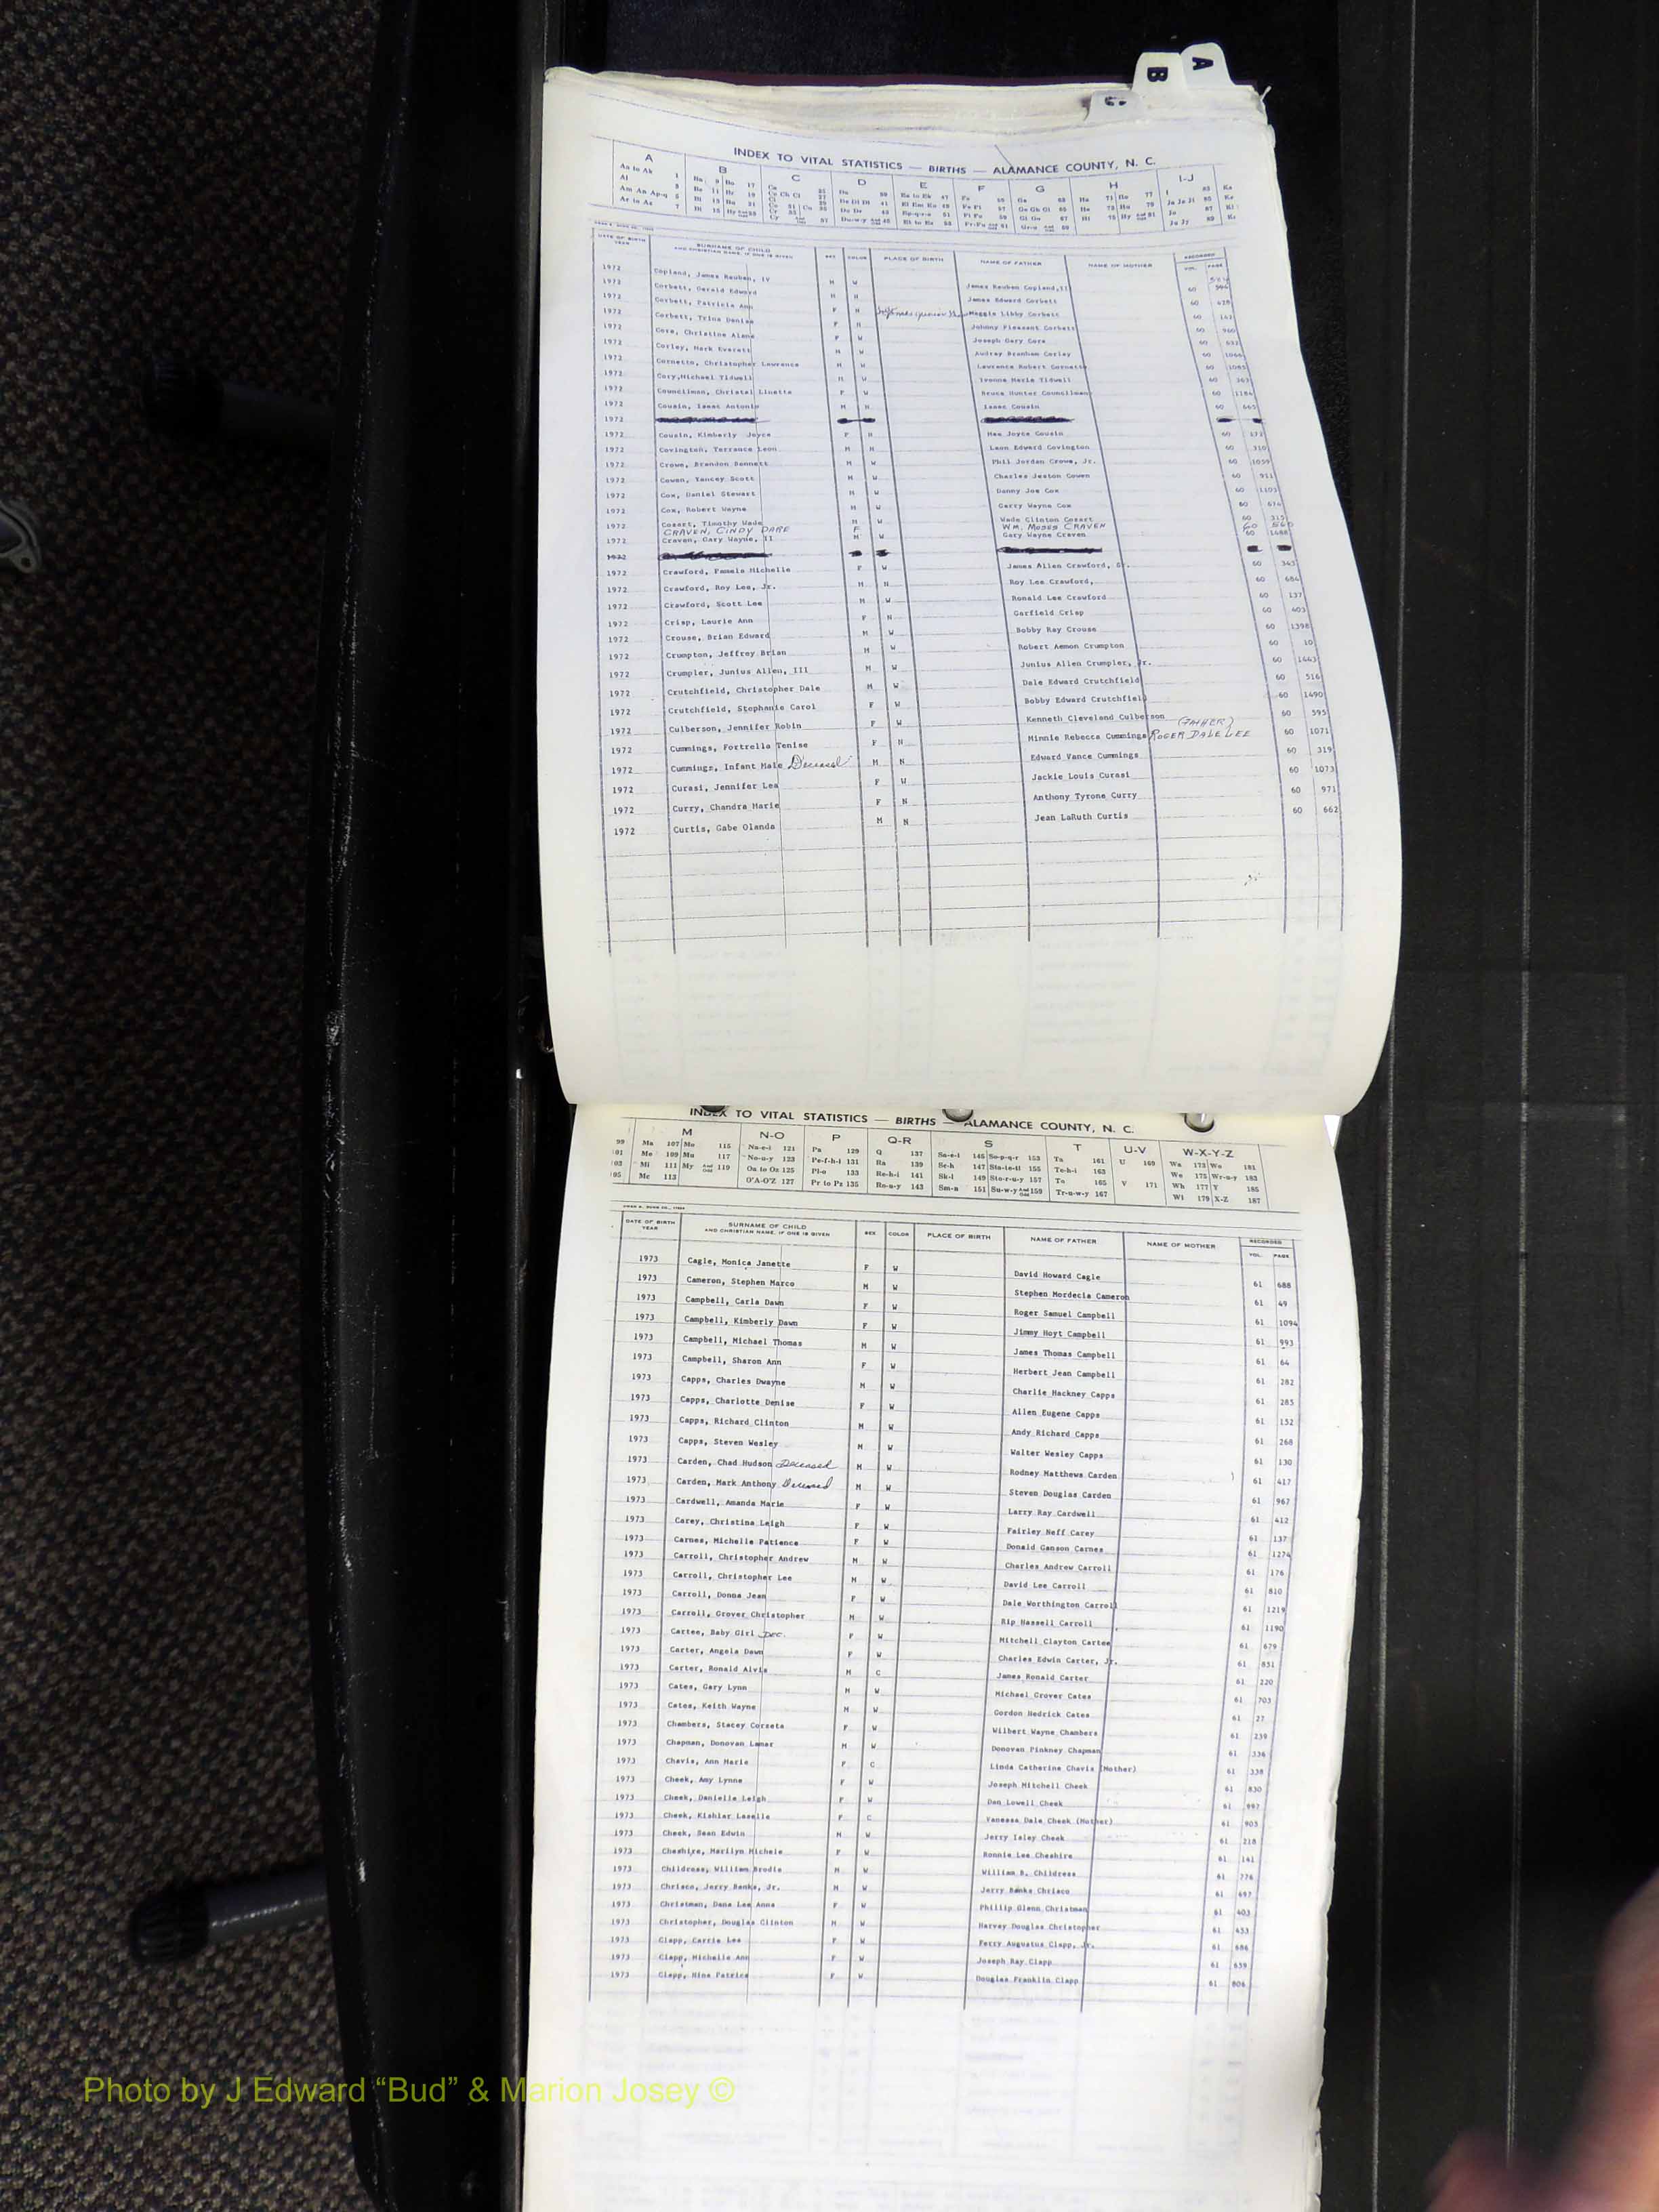 A
B
C
INDEX TO VITAL STATISTICS — BIRTHS — ALAMANCE COUNTY, N. C.
A B C D E F G H I-J
DATE OF BIRTH YEAR SURNAME OF CHILD AND CHRISTIAN NAME, IF ONE IS GIVEN SEX COLOR PLACE OF BIRTH NAME OF FATHER NAME OF MOTHER RECORDED VOL. PAGE
1972 Copland, James Reuben, IV M W James Reuben Copland, II 60
1972 Corbett, Gerald Edward M N James Edward Corbett 60 428
1972 Corbett, Patricia Ann F N Maggie Libby Corbett 60 142
1972 Corbett, Trina Denise F N Johnny Pleasant Corbett 60 960
1972 Core, Christine Alane F W Joseph Gary Core 60 632
1972 Corley, Mark Everett M W Audrey Branham Corley 60 1066
1972 Cornetto, Christopher Lawrence M W Lawrence Robert Cornetto 60 1085
1972 Cory, Michael Tidwell M W Ivonne Merle Tidwell 60 367
1972 Councilman, Christal Linette F W Bruce Hunter Councilman 60 1184
1972 Cousin, Isaac Antonio M N Isaac Cousin 60 665
1972
1972 Cousin, Kimberly Joyce F N Hee Joyce Cousin 60 172
1972 Covington, Terrance Leon M N Leon Edward Covington 60 310
1972 Crowe, Brandon Bennett M W Phil Jordan Crowe, Jr. 60 1059
1972 Cowan, Yancey Scott M W Charles Jeston Cowen 60 911
1972 Cox, Daniel Stewart M W Danny Joe Cox 60 1103
1972 Cox, Robert Wayne M W Garry Wayne Cox 60 674
1972 Cozart, Timothy Wade M W Wade Clinton Cozart 60 315
CRAVEN, CINDY DARE F WM. MOSES CRAVEN 60 560
1972 Craven, Gary Wayne, II M W Gary Wayne Craven 60 1488
1972
1972 Crawford, Pamela Michelle F W James Allen Crawford, Sr. 60 343
1972 Crawford, Roy Lee, Jr. M N Roy Lee Crawford, 60 684
1972 Crawford, Scott Lee M W Ronald Lee Crawford 60 137
1972 Crisp, Laurie Ann F N Garfield Crisp 60 403
1972 Crouse, Brian Edward M W Bobby Ray Crouse 60 1398
1972 Crumpton, Jeffrey Brian M W Robert Aemon Crumpton 60 10
1972 Crumpler, Junius Allen, III M W Junius Allen Crumpler, Jr. 60 1443
1972 Crutchfield, Christopher Dale M W Dale Edward Crutchfield 60 516
1972 Crutchfield, Stephanie Carol F W Bobby Edward Crutchfield 60 1490
1972 Culberson, Jennifer Robin F W Kenneth Cleveland Culberson 60 595
1972 Cummings, Fortrella Tenise F N Minnie Rebecca Cummings ROGER DALE LEE (FATHER) 60 1071
1972 Cummings, Infant Male Deceased M N Edward Vance Cummings 60 319
1972 Curasi, Jennifer Lea F W Jackie Louis Curasi 60 1073
1972 Curry, Chandra Marie F N Anthony Tyrone Curry 60 971
1972 Curtis, Gabe Olanda M N Jean LaRuth Curtis 60 662
INDEX TO VITAL STATISTICS — BIRTHS — ALAMANCE COUNTY, N. C.
M N-O P Q-R S T U-V W-X-Y-Z
99 Ma 107 Mo 115 Na-e-i 121 Pa 129 Q 137 Sa-c-i 145 So-p-q-r 153 Ta 161 U 169 Wa 173 Wo 181
01 Me 109 Mu 117 No-u-y 123 Pe-f-h-i 131 Ra 139 Sc-h 147 Sta-ie-ti 155 Te-h-i 163 We 175 Wr-u-y 183
03 Mi 111 My And Odd 119 Oa to Oz 125 Pl-o 133 Re-h-i 141 Sk-l 149 Sto-r-u-y 157 To 165 V 171 Wh 177 Y 185
05 Mc 113 O'A-O'Z 127 Pr to Pz 135 Ro-u-y 143 Sm-n 151 Su-w-y And Odd 159 Tr-u-w-y 167 Wi 179 X-Z 187
DATE OF BIRTH YEAR SURNAME OF CHILD AND CHRISTIAN NAME, IF ONE IS GIVEN SEX COLOR PLACE OF BIRTH NAME OF FATHER NAME OF MOTHER RECORDED VOL. PAGE
1973 Cagle, Monica Janette F W David Howard Cagle 61 688
1973 Cameron, Stephen Marco M W Stephen Mordecia Cameron 61 49
1973 Campbell, Carla Dawn F W Roger Samuel Campbell 61 1094
1973 Campbell, Kimberly Dawn F W Jimmy Hoyt Campbell 61 993
1973 Campbell, Michael Thomas M W James Thomas Campbell 61 64
1973 Campbell, Sharon Ann F W Herbert Jean Campbell 61 282
1973 Capps, Charles Dwayne M W Charlie Hackney Capps 61 285
1973 Capps, Charlotte Denise F W Allen Eugene Capps 61 152
1973 Capps, Richard Clinton M W Andy Richard Capps 61 268
1973 Capps, Steven Wesley M W Walter Wesley Capps 61 130
1973 Carden, Chad Hudson Deceased M W Rodney Matthews Carden 61 417
1973 Carden, Mark Anthony Deceased M W Steven Douglas Carden 61 967
1973 Cardwell, Amanda Marie F W Larry Ray Cardwell 61 412
1973 Carey, Christina Leigh F W Fairley Neff Carey 61 137
1973 Carnes, Michelle Patience F W Donald Ganson Carnes 61 1274
1973 Carroll, Christopher Andrew M W Charles Andrew Carroll 61 176
1973 Carroll, Christopher Lee M W David Lee Carroll 61 810
1973 Carroll, Donna Jean F W Dale Worthington Carroll 61 1219
1973 Carroll, Grover Christopher M W Rip Nassell Carroll 61 1190
1973 Cartee, Baby Girl DEC. F W Mitchell Clayton Cartee 61 679
1973 Carter, Angela Dawn F W Charles Edwin Carter, Jr. 61 851
1973 Carter, Ronald Alvis M C James Ronald Carter 61 220
1973 Cates, Gary Lynn M W Michael Grover Cates 61 703
1973 Cates, Keith Wayne M W Gordon Hedrick Cates 61 27
1973 Chambers, Stacey Corzeta F W Wilbert Wayne Chambers 61 239
1973 Chapman, Donovan Lamar M W Donovan Pinkney Chapman 61 336
1973 Chavis, Ann Marie F C Linda Catherine Chavis (Mother) 61 338
1973 Cheek, Amy Lynne F W Joseph Mitchell Cheek 61 830
1973 Cheek, Danielle Leigh F W Dan Lowell Cheek 61 997
1973 Cheek, Kishlar Laselle F C Vanessa Dale Cheek (Mother) 61 903
1973 Cheek, Sean Edwin M W Jerry Isley Cheek 61 218
1973 Cheshire, Marilyn Michele F W Ronnie Lee Cheshire 61 141
1973 Childress, William Brodie M W William B. Childress 61 776
1973 Chrisco, Jerry Banks, Jr. M W Jerry Banks Chrisco 61 697
1973 Christman, Dana Lee Anna F W Phillip Glenn Christman 61 403
1973 Christopher, Douglas Clinton M W Harvey Douglas Christopher 61 453
1973 Clapp, Carrie Lea F W Ferry Augustus Clapp, Jr. 61 686
1973 Clapp, Michelle Ann F W Joseph Ray Clapp 61 659
1973 Clapp, Nina Patrice F W Douglas Franklin Clapp 61 806
Photo by J Edward “Bud” & Marion Josey ©